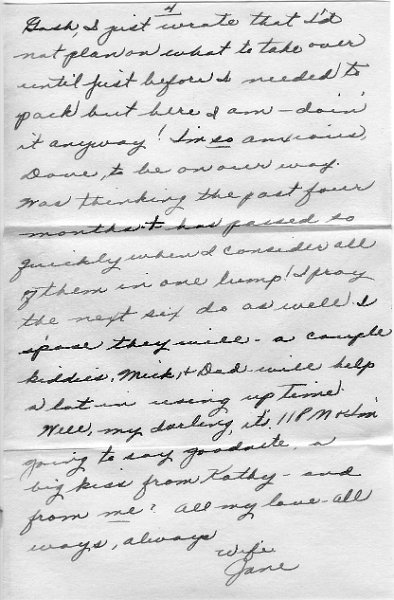 4
Gosh, I just wrote that I'd
not plan on what to take over
until just before I needed to
pack but here I am - doin'
it anyway! I'm so anxious,
Dave, to be on our way.
Was thinking the past four
months + has passed so
quickly when I consider all
of them in one lump! I pray
the next six do as well. I
s'pose they will - a couple
kiddies, Mick, & Dad will help
a lot in using up time!
Well, my darling, it's 11 PM & I'm
going to say goodnite, a
big kiss from Kathy - and
from me! All my love - all
ways, always
Wife
Jane